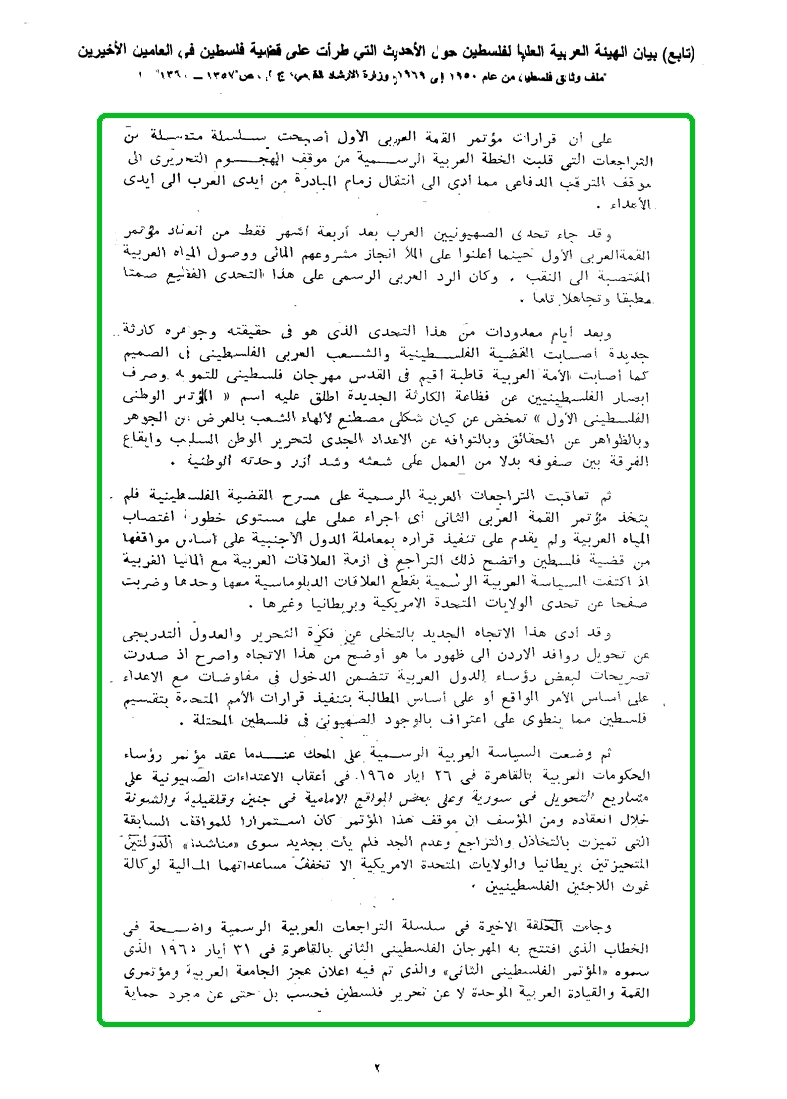 (تابع) بيان الهيئة العربية العليا لفلسطين حول الأحديث التي طرأت على قضية فلسطين في العامين الأخيرين
"ملف وثائق فلسطين من عام ١٩٥٠ إلى ١٩٦٩، وزارة الارشاد القومي، ج ٢، ص "١٣٥٧ — ١٣٩٠"
على أن قرارات مؤتمر القمة العربى الأول أصبحت سلسلة متصلة من
التراجعات التى قلبت الخطة العربية الرسمية من موقف الهجوم التحريرى الى
موقف الترقب الدفاعى مما أدى الى انتقال زمام المبادرة من أيدى العرب الى أيدى
الأعداء .
وقد جاء تحدى الصهيونيين العرب بعد أربعة أشهر فقط من انعقاد مؤتمر
القمةالعربى الأول حينما أعلنوا على الملأ انجاز مشروعهم المائى ووصول المياه العربية
المغتصبة الى النقب . وكان الرد العربى الرسمى على هذا التحدى الفظيع صمتا
مطبقا وتجاهلا تاما .
وبعد أيام معدودات من هذا التحدى الذى هو فى حقيقته وجوهره كارثة
جديدة أصابت القضية الفلسطينية والشعب العربى الفلسطينى فى الصميم
كما أصابت الأمة العربية قاطبة أقيم فى القدس مهرجان فلسطينى للتمويه وصرف
ابصار الفلسطينيين عن فظاعة الكارثة الجديدة اطلق عليه اسم « المؤتمر الوطنى
الفلسطينى الأول » تمخض عن كيان شكلى مصطنع لألهاء الشعب بالعرض عن الجوهر
وبالظواهر عن الحقائق وبالتوافه عن الاعداد الجدى لتحرير الوطن السليب وايقاع
الفرقة بين صفوفه بدلا من العمل على لم شعثه وشد أزر وحدته الوطنية .
ثم تعاقبت التراجعات العربية الرسمية على مسرح القضية الفلسطينية فلم
يتخذ مؤتمر القمة العربى الثانى أى اجراء عملى على مستوى خطورة اغتصاب
المياه العربية ولم يقدم على تنفيذ قراره بمعاملة الدول الأجنبية على أساس مواقفها
من قضية فلسطين واتضح ذلك التراجع فى ازمة العلاقات العربية مع ألمانيا الغربية
اذ اكتفت السياسة العربية الرسمية بقطع العلاقات الدبلوماسية معها وحدها وضربت
صفحا عن تحدى الولايات المتحدة الامريكية وبريطانيا وغيرها .
وقد أدى هذا الاتجاه الجديد بالتخلى عن فكرة التحرير والعدول التدريجى
عن تحويل روافد الاردن الى ظهور ما هو أوضح من هذا الاتجاه واصرح اذ صدرت
تصريحات لبعض رؤساء الدول العربية تتضمن الدخول فى مفاوضات مع الاعداء
على أساس الأمر الواقع أو على أساس المطالبة بتنفيذ قرارات الأمم المتحدة بتقسيم
فلسطين مما ينطوى على اعتراف بالوجود الصهيونى فى فلسطين المحتلة .
ثم وضعت السياسة العربية الرسمية على المحك عندما عقد مؤتمر رؤساء
الحكومات العربية بالقاهرة فى ٢٦ ايار ١٩٦٥ فى أعقاب الاعتداءات الصهيونية على
مشاريع التحويل فى سورية وعلى بعض المواقع الامامية فى جنين وقلقيلية والشونة
خلال انعقاده ومن المؤسف ان موقف هذا المؤتمر كان استمرارا للمواقف السابقة
التى تميزت بالتخاذل والتراجع وعدم الجد فلم يأت بجديد سوى «مناشدة» الدولتين
المتحيزتين بريطانيا والولايات المتحدة الامريكية الا تخفف مساعداتهما المالية لوكالة
غوث اللاجئين الفلسطينيين .
وجاءت الحلقة الاخيرة فى سلسلة التراجعات العربية الرسمية واضحة فى
الخطاب الذى افتتح به المهرجان الفلسطينى الثانى بالقاهرة فى ٣١ أيار ١٩٦٥ الذى
سموه «المؤتمر الفلسطينى الثانى» والذى تم فيه اعلان عجز الجامعة العربية ومؤتمرى
القمة والقيادة العربية الموحدة لا عن تحرير فلسطين فحسب بل حتى عن مجرد حماية
٢